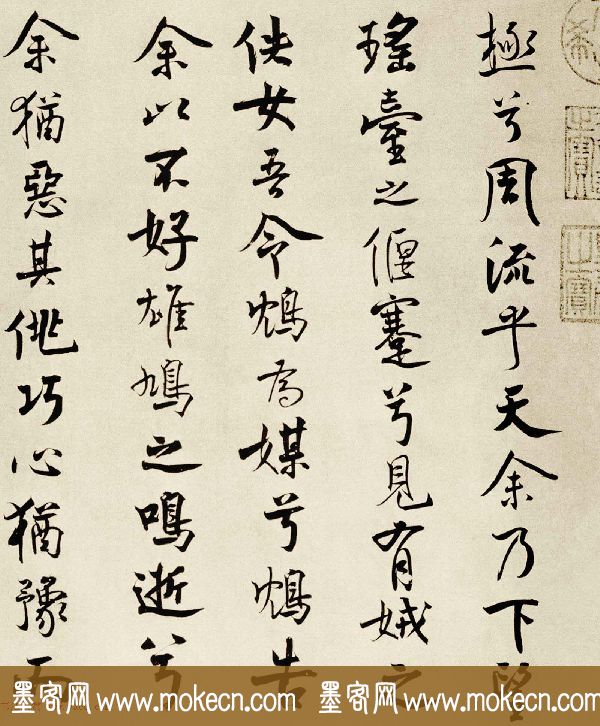 極兮周流乎天余乃下
瑤臺之偃蹇兮見有娀之
佚女吾令鴆為媒兮鴆告
余以不好雄鳩之鳴逝兮
余猶惡其佻巧心猶豫而
墨客网 www.mokecn.com 墨客网 www.mokecn.com